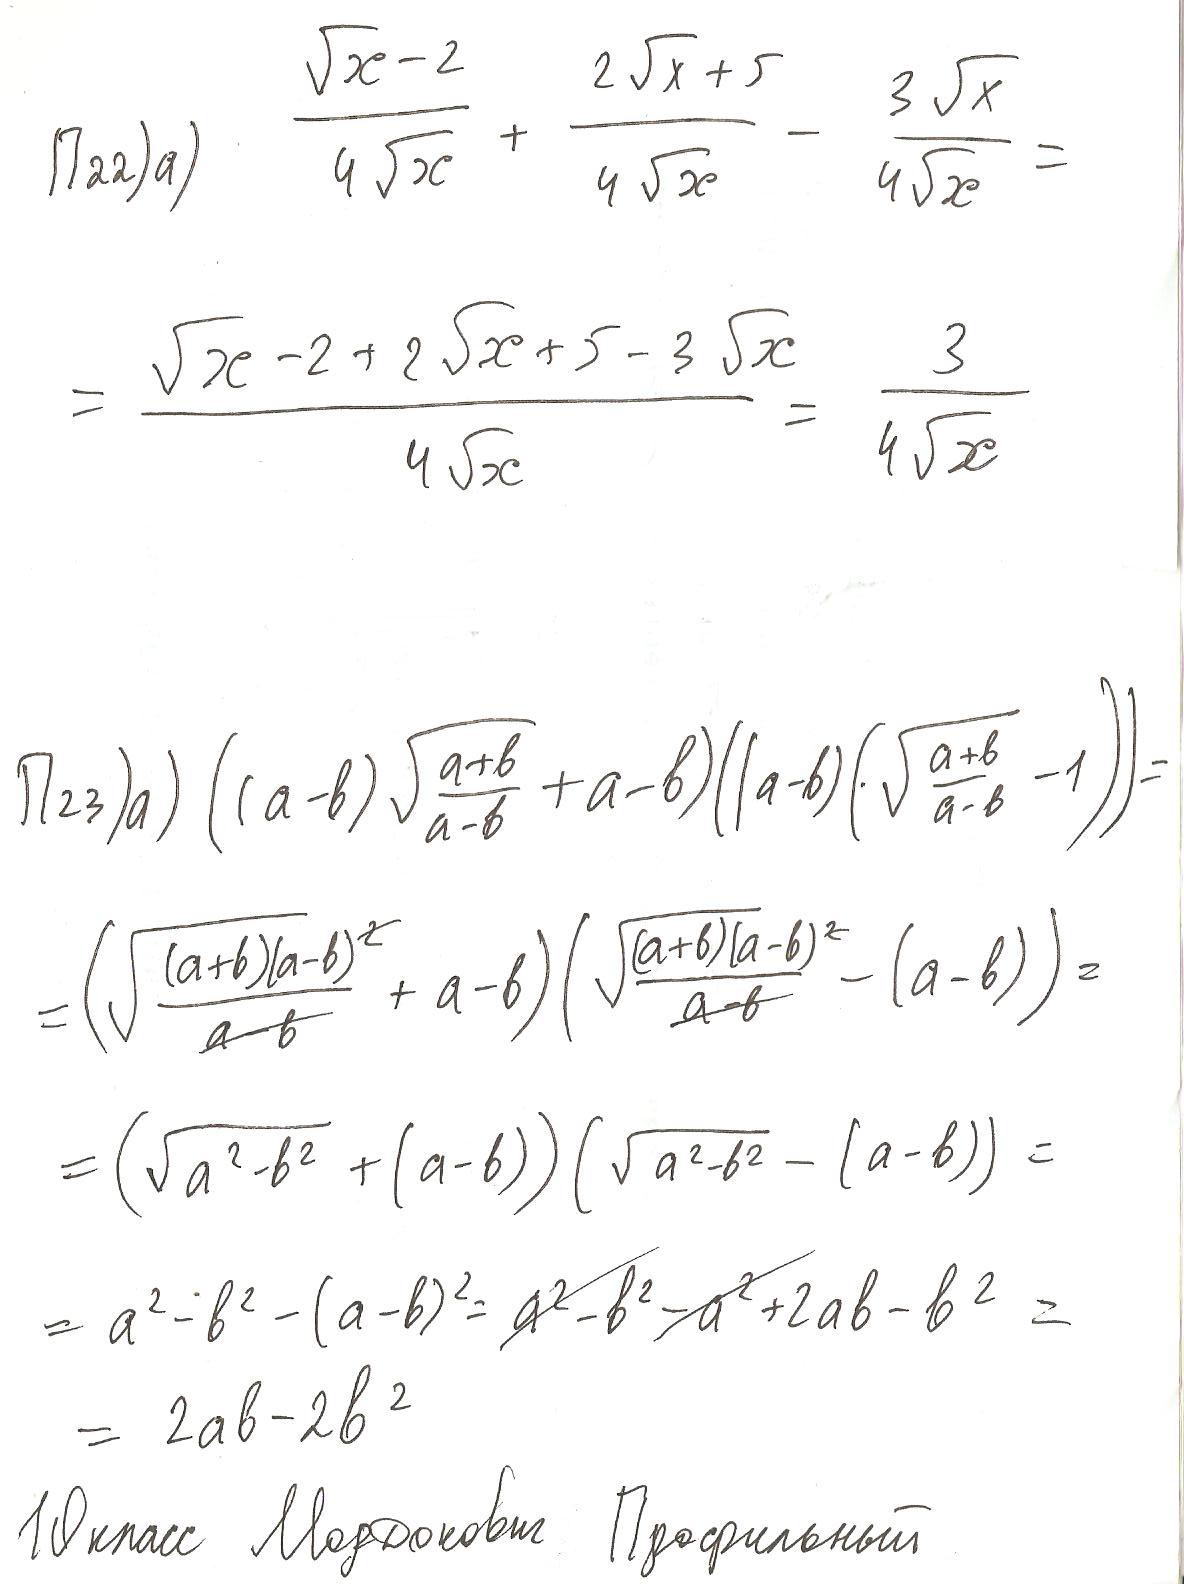 П22)а) (√x-2)/(4√x) + (2√x+5)/(4√x) - (3√x)/(4√x) =
= (√x-2+2√x+5-3√x)/(4√x) = 3/(4√x)
П23)а) ((a-b)√((a+b)/(a-b)) + a-b)((a-b)(·√((a+b)/(a-b)) -1)) =
= (√((a+b)(a-b)²/(a-b)) + a-b)(√((a+b)(a-b)²/(a-b)) - (a-b)) =
= (√(a²-b²) + (a-b))(√(a²-b²) - (a-b)) =
= a²-b²-(a-b)² = a²-b²-a²+2ab-b² =
= 2ab-2b²
10класс Мордкович Профильный